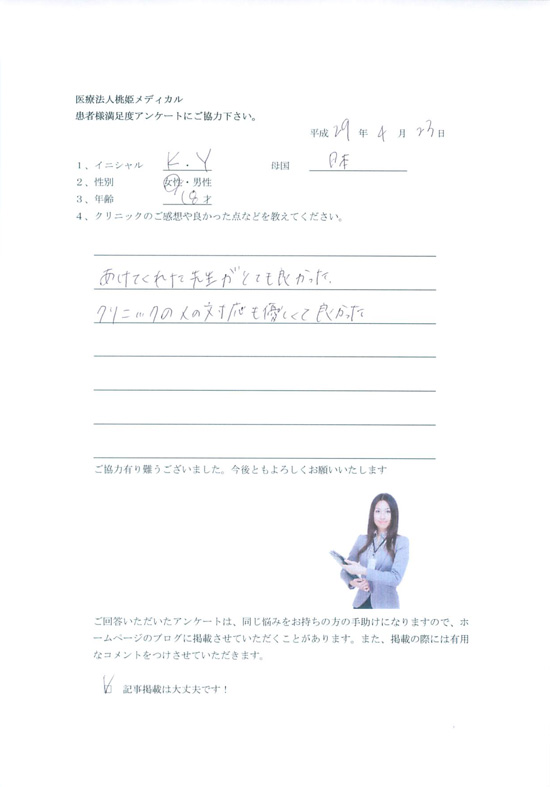 医療法人桃姫メディカル
患者様満足度アンケートにご協力下さい。
平成 29 年 4 月 23 日
1、イニシャル K.Y 母国 日本
2、性別 女性・男性
3、年齢 18才
4、クリニックのご感想や良かった点などを教えてください。
あけてくれた先生がとても良かった。
クリニックの人の対応も優しくて良かった
ご協力有り難うございました。今後ともよろしくお願いいたします
ご回答いただいたアンケートは、同じ悩みをお持ちの方の手助けになりますので、ホ
ームページのブログに掲載させていただくことがあります。また、掲載の際には有用
なコメントをつけさせていただきます。
記事掲載は大丈夫です！